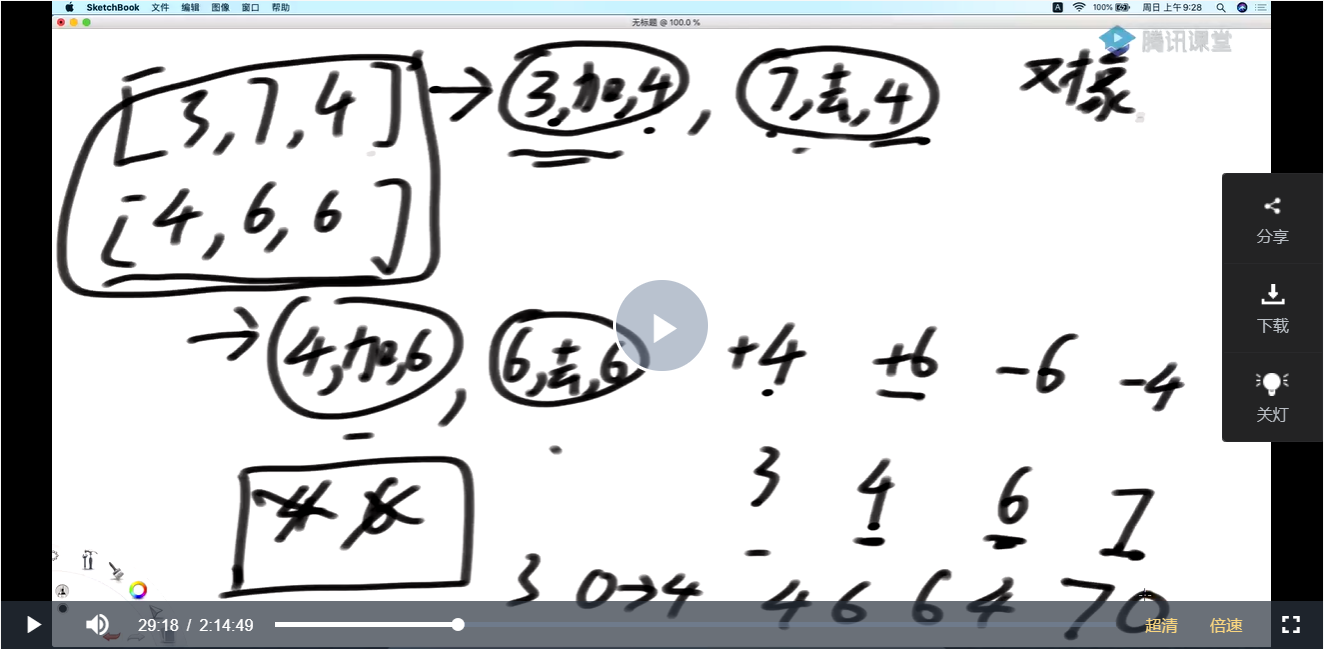 SketchBook 文件 编辑 图像 窗口 帮助 A 100% 周日 上午9:28
无标题 @ 100.0 %
腾讯课堂
[3,7,4] → 3,加,4, 7,去,4 对象
[4,6,6]
→ 4,加,6, 6,去,6 +4 +6 -6 -4
4 6 3 4 6 7
3 0→4 46 64 70
分享
下载
关灯
29:18 / 2:14:49 超清 倍速